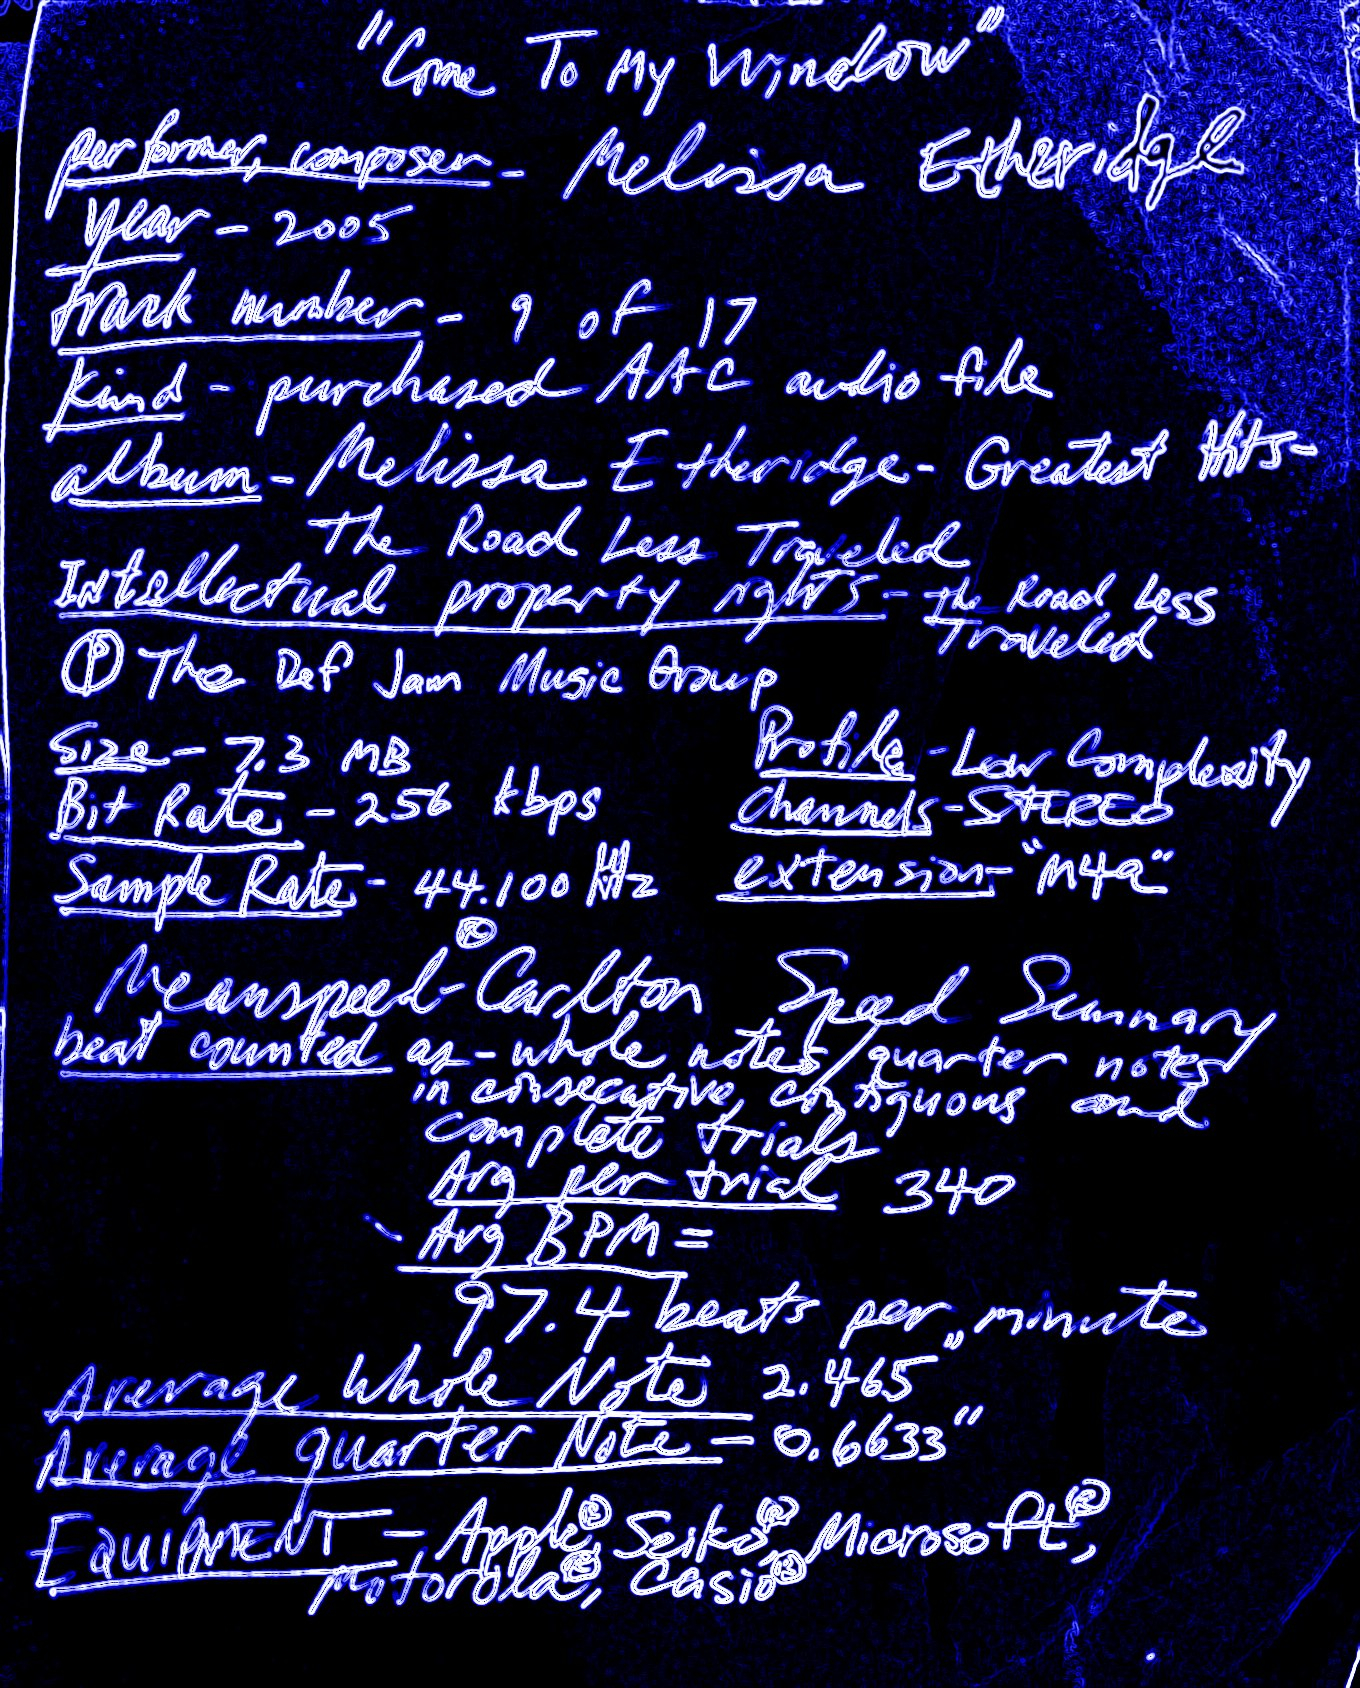 "Come To My Window"
performer, composer - Melissa Etheridge
year - 2005
track number - 9 of 17
Kind - purchased AAC audio file
album - Melissa Etheridge - Greatest Hits -
The Road Less Traveled
Intellectual property rights - The Road Less
Traveled
Ⓟ The Def Jam Music Group
Size - 7.3 MB
Profile - Low Complexity
Bit Rate - 256 kbps
Channels - STEREO
Sample Rate - 44.100 Hz
extension - "M4a"
Meanspeed®-Carlton Speed Summary
beat counted as - whole notes/quarter notes
in consecutive, contiguous and
complete trials
Avg per trial 340
Avg BPM =
97.4 beats per minute
Average Whole Note 2.465"
Average quarter Note - 0.6633"
EQUIPMENT - Apple®, Seiko®, Microsoft®,
Motorola®, Casio®